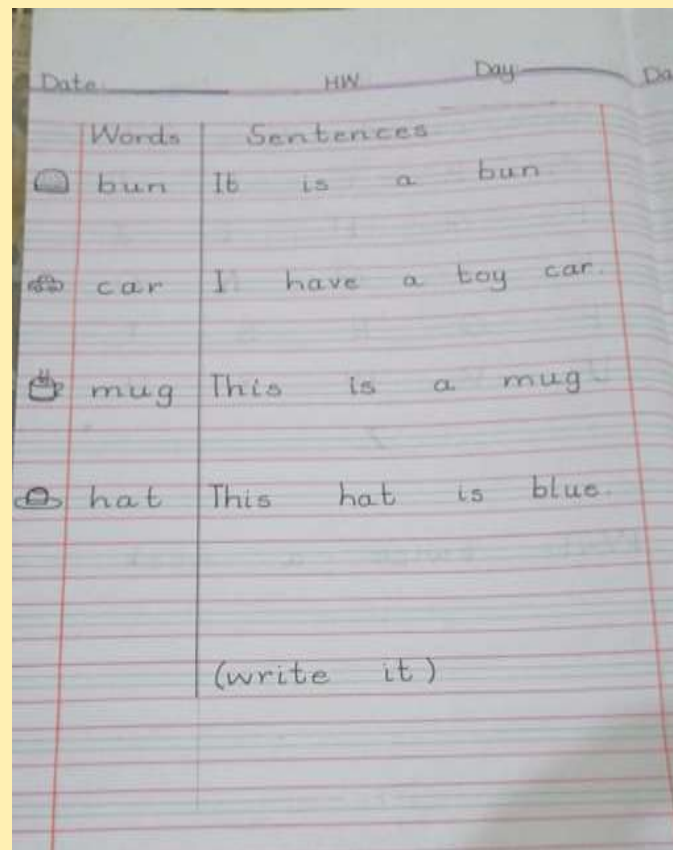 Date HW Day Da
Words Sentences
bun It is a bun
car I have a toy car.
mug This is a mug
hat This hat is blue.
(write it)